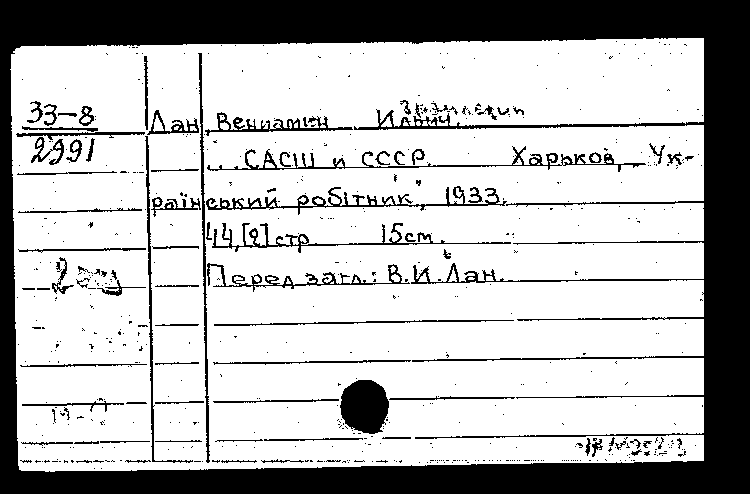 33-8
2991
Лан, Вениамин Ильич.
...САСШ и СССР. Харьков, „Ук-
раїнський робітник", 1933.
44,[2] стр. 15см.
Перед загл.: В.И.Лан.